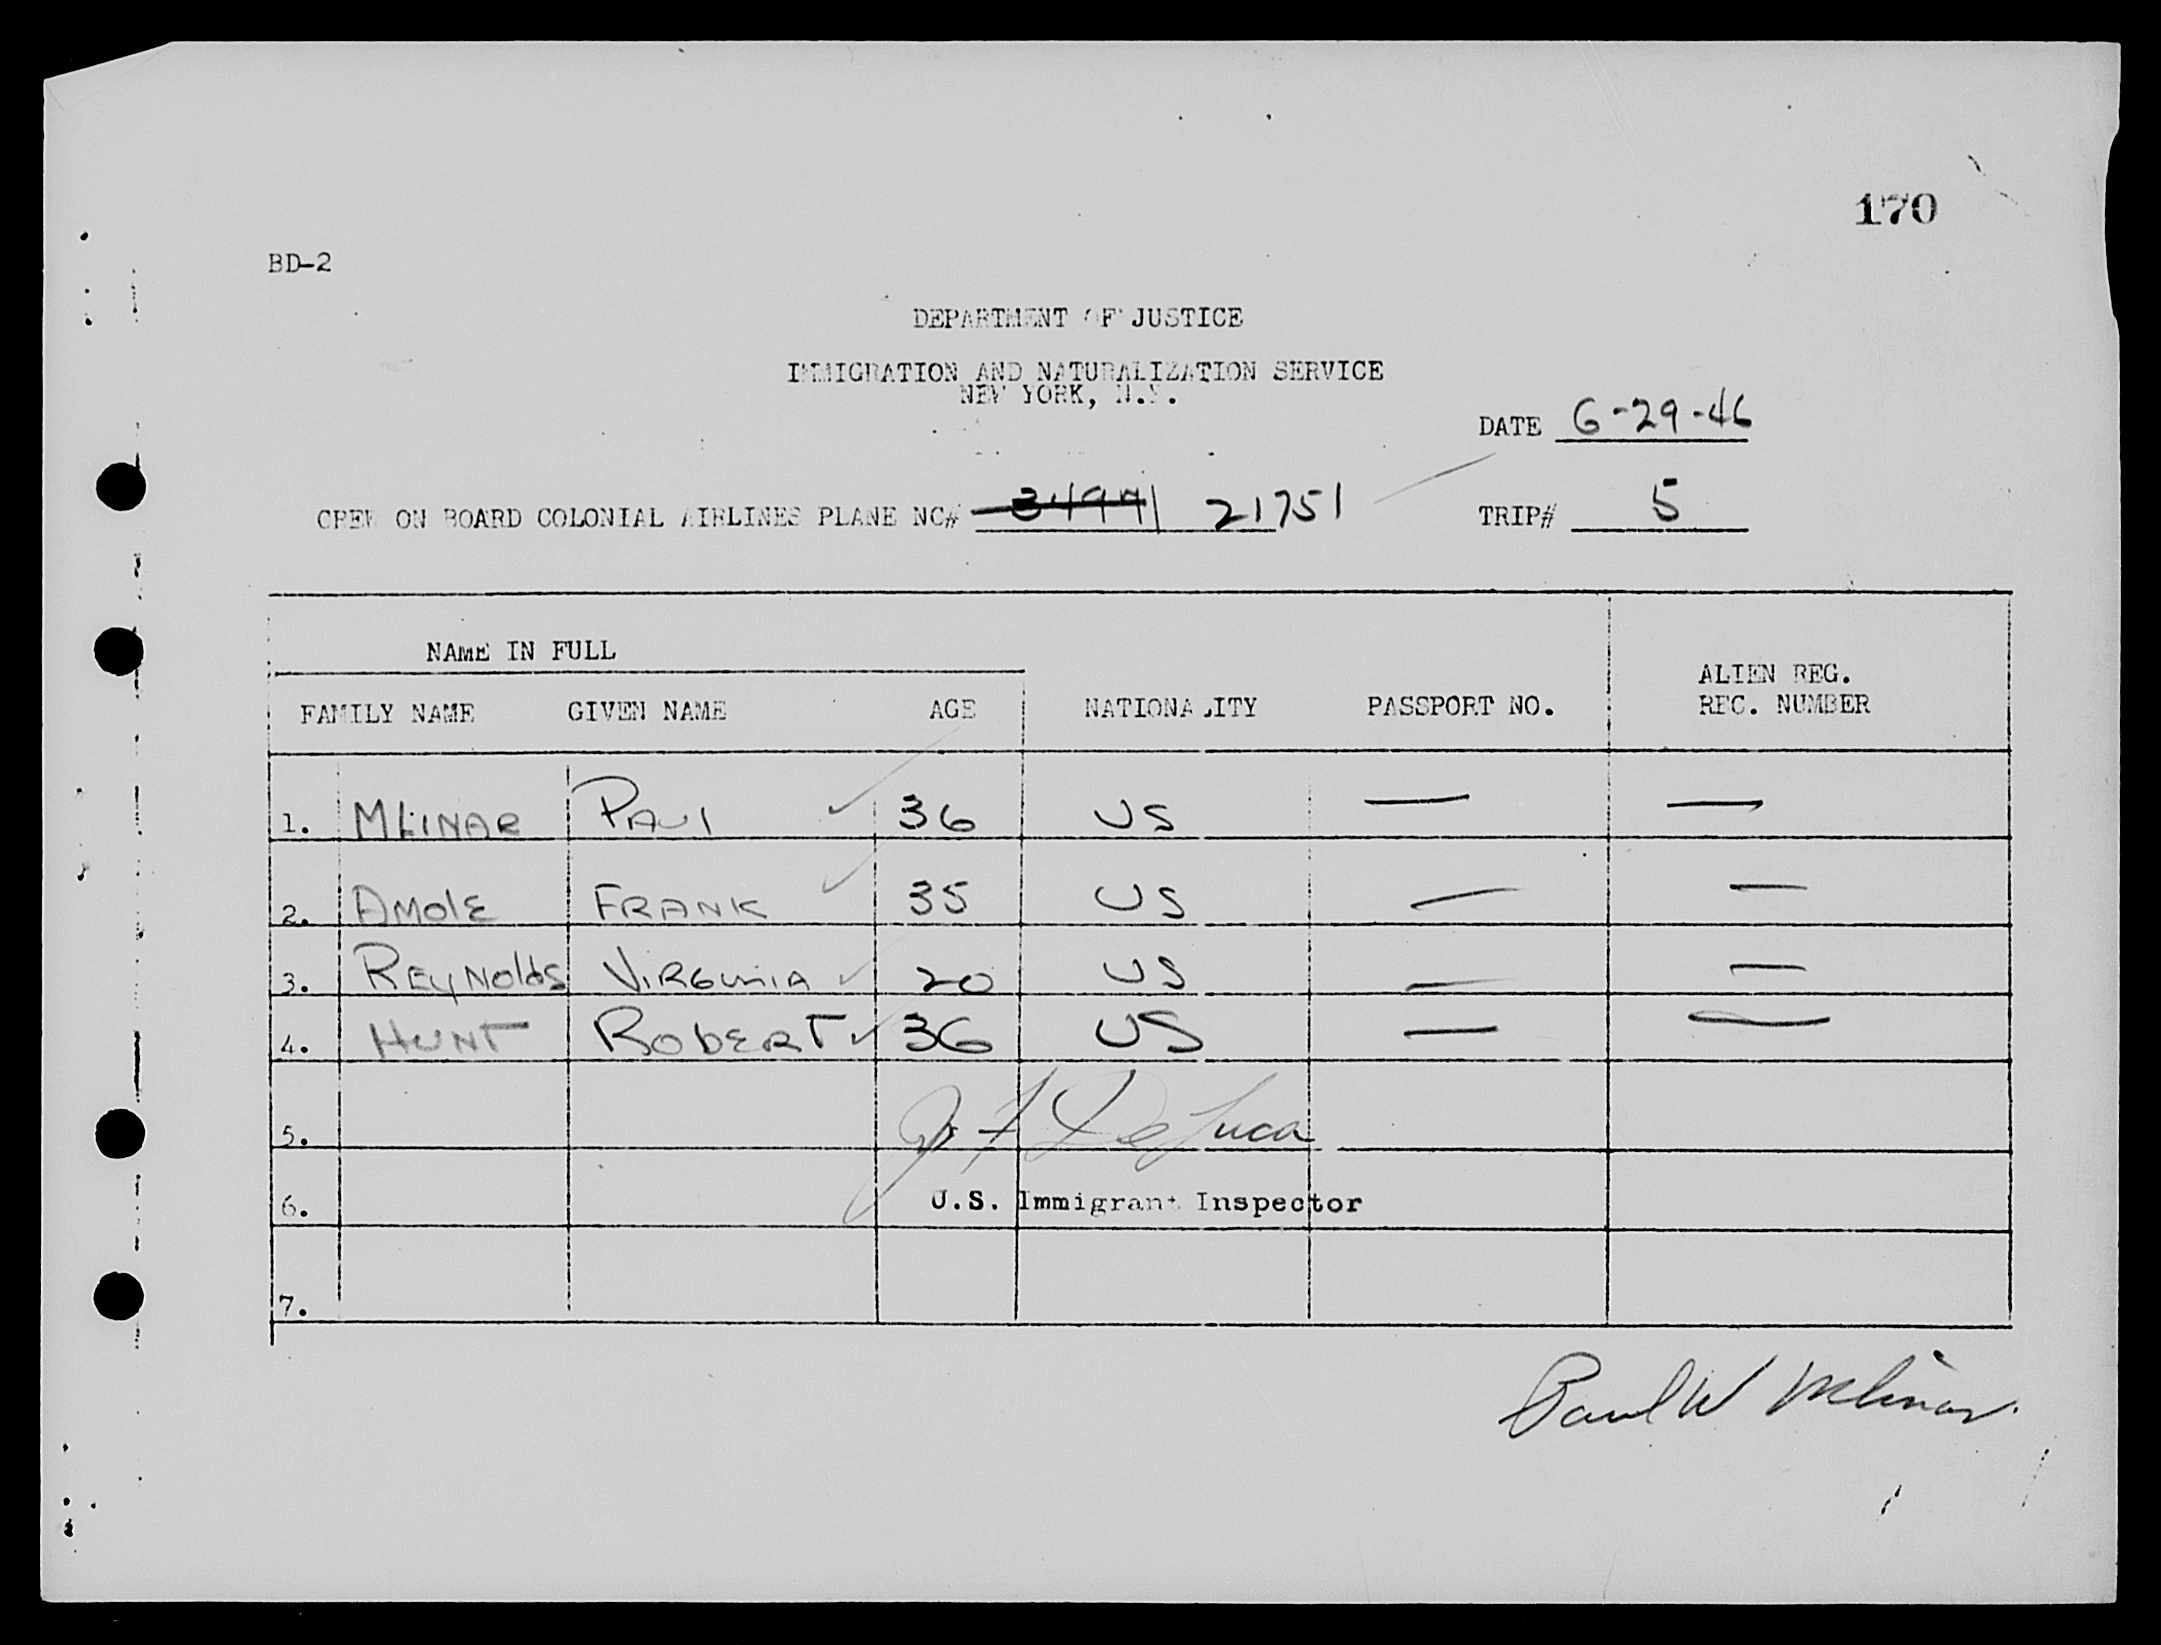 170
BD-2
DEPARTMENT OF JUSTICE
IMMIGRATION AND NATURALIZATION SERVICE
NEW YORK, N.Y.
DATE 6-29-46
CREW ON BOARD COLONIAL AIRLINES PLANE NC# 21751 TRIP# 5
NAME IN FULL
FAMILY NAME GIVEN NAME AGE NATIONALITY PASSPORT NO. ALIEN REG. REC. NUMBER
1. MLINAR PAUL ✓ 36 US — —
2. AMOLE FRANK ✓ 35 US — —
3. REYNOLDS VIRGINIA ✓ 20 US — —
4. HUNT ROBERT ✓ 36 US — —
5. De Luca
6. U.S. Immigrant Inspector
7.
Paul W Mlinar